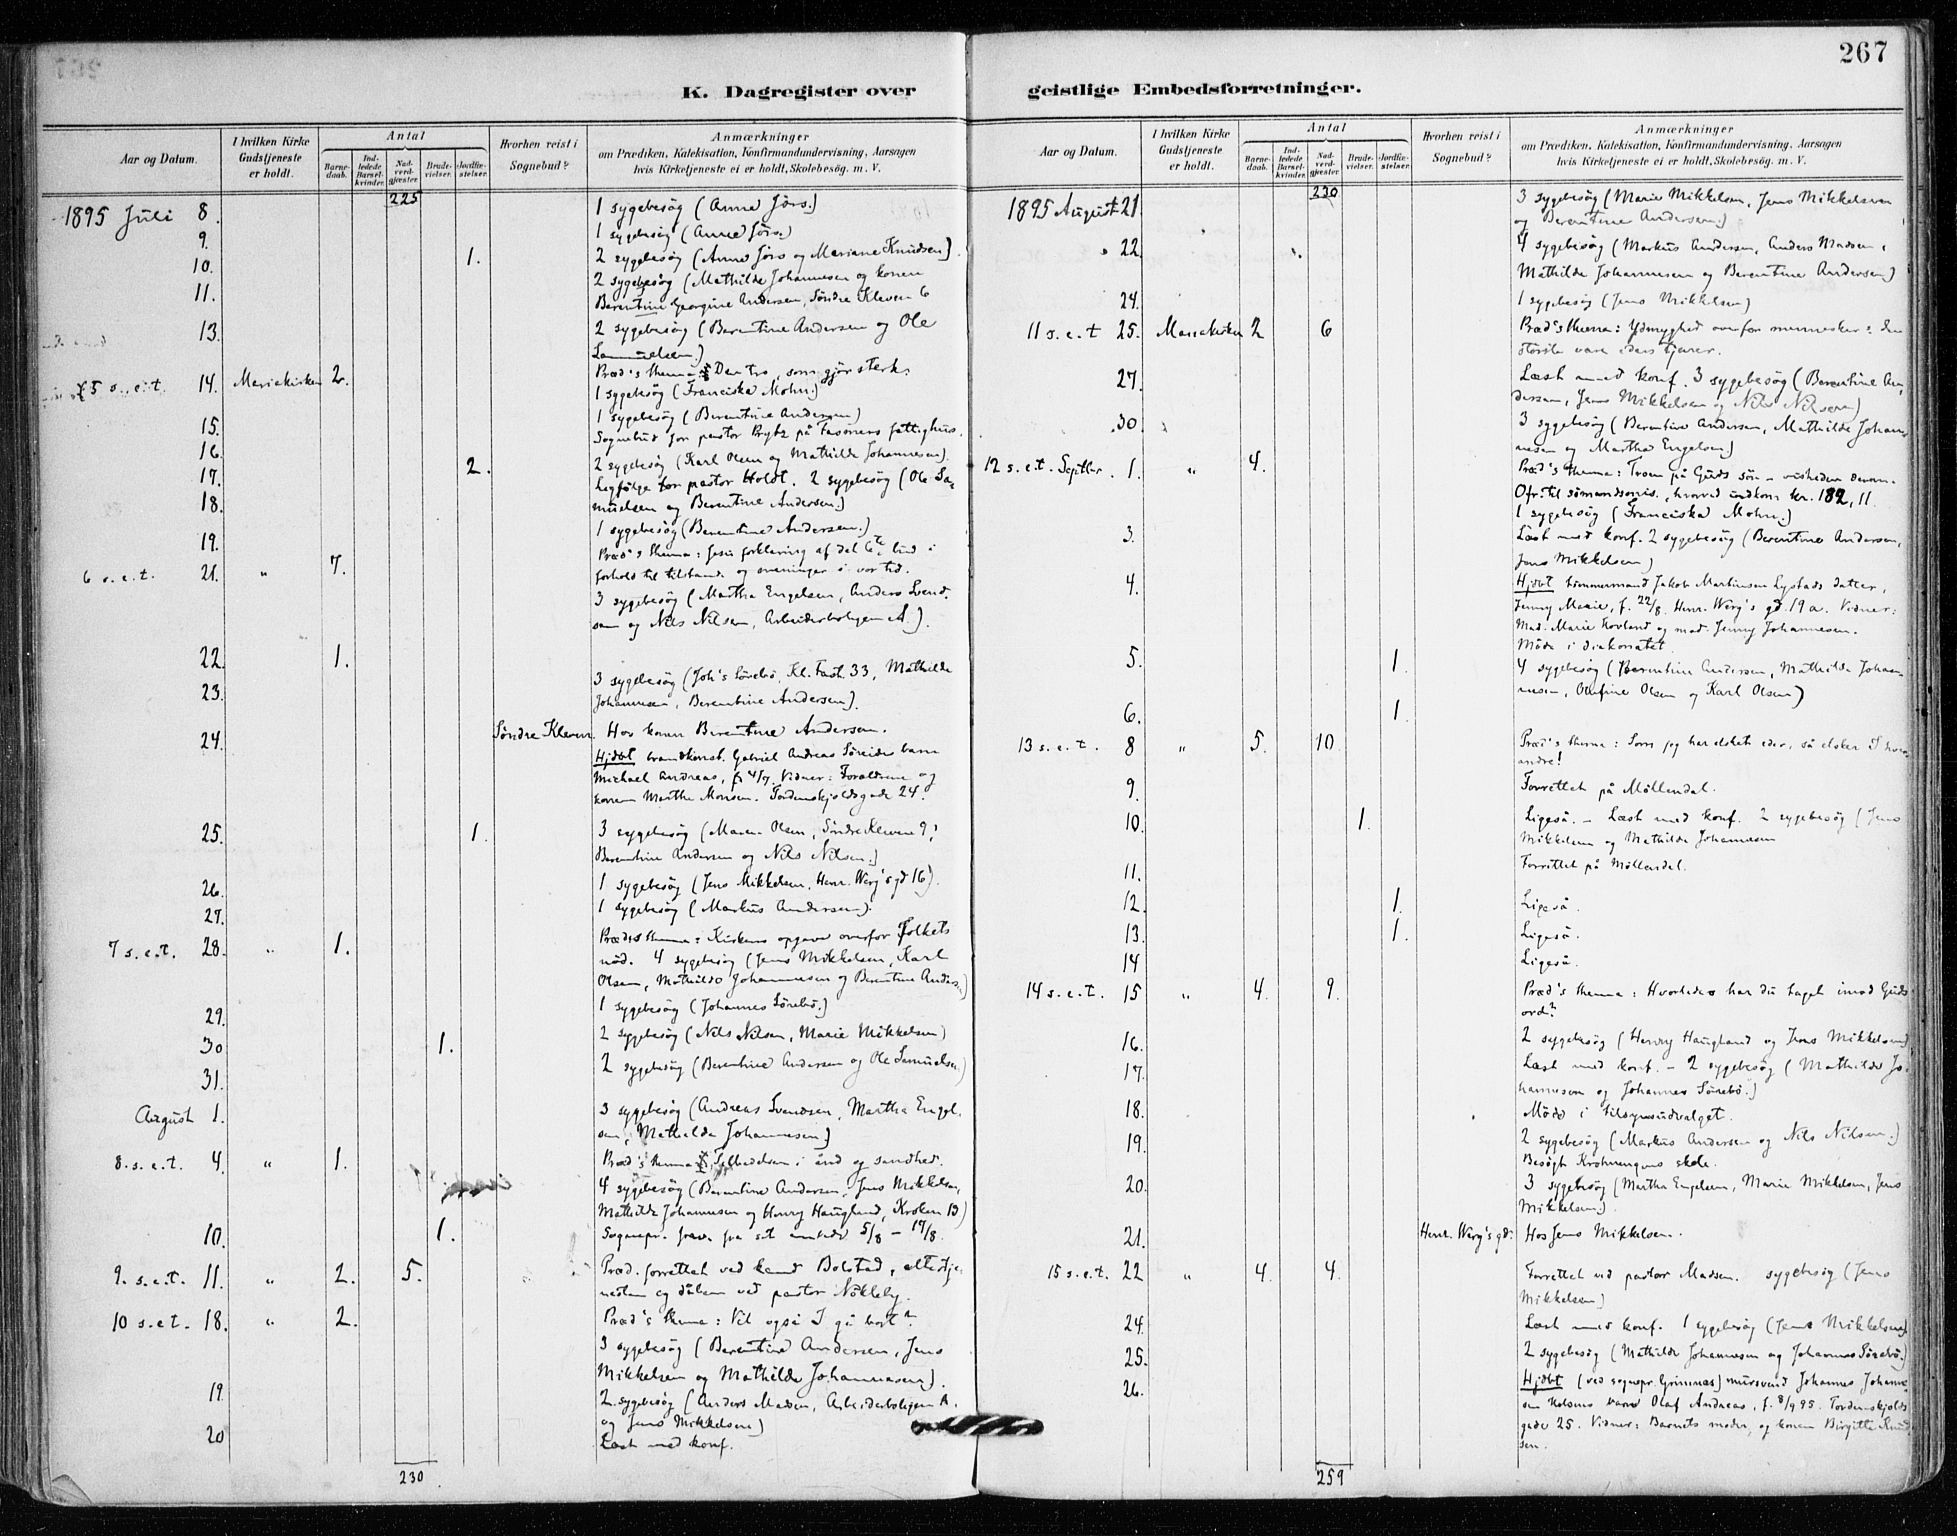 267
K. Dagregister over geistlige Embedsforretninger.
Aar og Datum.
I hvilken Kirke Gudstjeneste er holdt.
Antal
Barnedaab.
Indledede Barselkvinder.
Nadverdgjæster.
Brudevielser.
Jordfæstelser.
Hvorhen reist i Sognebud?
Anmærkninger
om Prædiken, Katekisation, Konfirmandundervisning, Aarsagen
hvis Kirketjeneste ei er holdt, Skolebesøg. m. V.
225
1895 Juli 8. 1 sygebesøg (Anne Jörs.)
9. 1 sygebesög (Anne Jörs.)
10. 1. 2 sygebesög (Anne Jörs og Mariane Knudsen).
11. 2 sygebesög (Mathilde Johannesen og konen
Berentine Georgine Andersen, Söndre Kleven 6
13. 2 sygebesög (Berentine Andersen og Ole
Samuelsen.)
5 s.e.t. 14. Mariekirken 2. Præd's thema: Den tro, som gjør sterk.
1 sygebesög (Franciska Mohn.)
15. 1 sygebesög (Berentine Andersen)
16. Sognebud for pastor Brytz på fattighus.
17. 2. 2 sygebesög (Karl Olsen og Mathilde Johannesen).
18. Ligfölge for pastor Holdt. 2 sygebesög (Ole Sa-
muelsen og Berentine Andersen.)
19. 1 sygebesög (Berentine Andersen.)
6 s.e.t. 21. " 7. Præd's thema: Jesu forklaring af det 6te bud i
forhold til tilstande og meninger i vor tid.
3 sygebesög (Martha Engelsen, Anders Svend-
sen og Nils Nilsen, Arbeiderboligen A.).
22. 1.
23. 3 sygebesög (Joh's Sörebö, Kl. Fast. 33, Mathilde
Johannesen, Berentine Andersen).
24. Söndre Kleven. Hos konen Berentine Andersen.
Hjdbt brandkonst. Gabriel Andreas barn
Michael Andreas, f. 4/7. Vidner: Forældrene og
konen Marthe Monsen. Tordenskjoldsgade 24.
25. 1. 3 sygebesög (Maren Olsen, Söndre Kleven 9,
Berentine Andersen og Nils Nilsen.)
26. 1 sygebesög (Jens Mikkelsen, Henr. Werg's gd 16).
27. 1 sygebesög (Markus Andersen).
7 s.e.t. 28. " 1. Præd's thema: Kirkens opgave overfor folkets
nöd. 4 sygebesög (Jens Mikkelsen, Karl
Olsen, Mathilde Johannesen og Berentine Andersen)
29. 1 sygebesög (Johannes Sörebö.)
30 1. 2 sygebesög (Nils Nilsen, Marie Mikkelsen)
31. 2 sygebesög (Berentine Andersen og Ole Samuelsen)
August 1. 3 sygebesög (Andreas Svendsen, Martha Engel-
sen, Mathilde Johannesen)
8. s.e.t. 4. " 1. Præd's thema: Tilbedelsen i ånd og sandhed.
4 sygebesög (Berentine Andersen, Jens Mikkelsen,
Mathilde Johannesen og Henry Haugland, Kroken 13)
10. 1. Sognepr. frav. fra sit embede 5/8 – 19/8.
9. s.e.t. 11. " 2. 5. Præd. forrettet ved kand Bolstad, altertje-
nesten og dåben ved pastor Nökleby.
10 s.e.t. 18. " 2. Præd's thema: Vil også I gå bort?
3 sygebesög (Berentine Andersen, Jens
Mikkelsen og Mathilde Johannesen).
19. 2 sygebesög (Anders Madsen, Arbeiderboligen A.
og Jens Mikkelsen)
20 Læst med konf.
230
Aar og Datum.
I hvilken Kirke Gudstjeneste er holdt.
Antal
Barnedaab.
Indledede Barselkvinder.
Nadverdgjæster.
Brudevielser.
Jordfæstelser.
Hvorhen reist i Sognebud?
Anmærkninger
om Prædiken, Katekisation, Konfirmandundervisning. Aarsagen
hvis Kirketjeneste ei er holdt, Skolebesøg. m. V.
230
1895 August 21. 3 sygebesög (Marie Mikkelsen, Jens Mikkelsen
og Berentine Andersen.)
" 22. 4 sygebesög (Markus Andersen, Anders Madsen,
Mathilde Johannesen og Berentine Andersen)
24. 1 sygebesög (Jens Mikkelsen)
11 s.e.t 25. Mariekirken 2 6 Præd's thema: Ydmyghed overfor mennesker: den
störste være eders tjener.
27. Læst med konf. 3 sygebesög (Berentine An-
dersen, Jens Mikkelsen og Nils Nilsen)
30. 3 sygebesög (Berentine Andersen, Mathilde Johan-
nesen og Martha Engelsen)
12 s.e.t. Septbr. 1. " 4. Præd's thema: Troen på Guds sön – visheden derom.
Ofr. til sömandsmis., hvorved indkom kr. 182,11.
1 sygebesög (Franciska Mohn.)
3. Læst med konf. 2 sygebesög (Berentine Andersen,
Jens Mikkelsen)
4. Hjdbt tömmermand Jakob Martinsen Lystads datter,
Jenny Marie, f. 22/8. Henr. Werg's gd 19 a. Vidner:
Mad. Marie Hovland og mad. Jenny Johannesen.
Möde i diakoniatet.
5. 1. 4 sygebesög (Berentine Andersen, Mathilde Johan-
nesen, Olufine Olsen og Karl Olsen)
6. 1.
13 s.e.t. 8 " 5. 10. Præd's thema: Som jeg har elsket eder, så elsker I hver-
andre!
9. Forrettet på Möllendal.
10. 1. Ligeså. – Læst med konf. 2 sygebesög (Jens
Mikkelsen og Mathilde Johannesen
11. Forrettet på Möllendal.
12. 1. Ligeså.
13. 1. Ligeså.
14 Ligeså.
14 s.e.t. 15 " 4. 9. Præd's thema: Hvorledes har du taget imod Guds
ord?
16. 2 sygebesög (Henry Haugland og Jens Mikkelsen)
17. Læst med konf. – 2 sygebesög (Mathilde Jo-
hannesen og Johannes Sörebö.)
18. Möde i tilsynsudvalget.
19. 2 sygebesög (Markus Andersen og Nils Nilsen.)
Besögt Krohnengens skole.
20. 3 sygebesög (Martha Engelsen, Marie Mikkelsen, Jens
Mikkelsen)
21. Henr. Werg's gd: Hos Jens Mikkelsen.
15 s.e.t. 22 " 4. 4. Forrettet ved pastor Madsen. sygebesög (Jens
Mikkelsen)
24. Læst med konf. 1 sygebesög (Jens Mikkelsen)
25. 2 sygebesög (Mathilde Johannesen og Johannes Sörebö.)
26. Hjdbt (ved sognepr. Grimnes) mursvend Johannes Johanne-
sen barn Olaf Andreas, f. 8/9 95. Tordenskjolds
gade 25. Vidner: Barnets moder, og konen Birgitte Knud-
sen.
259